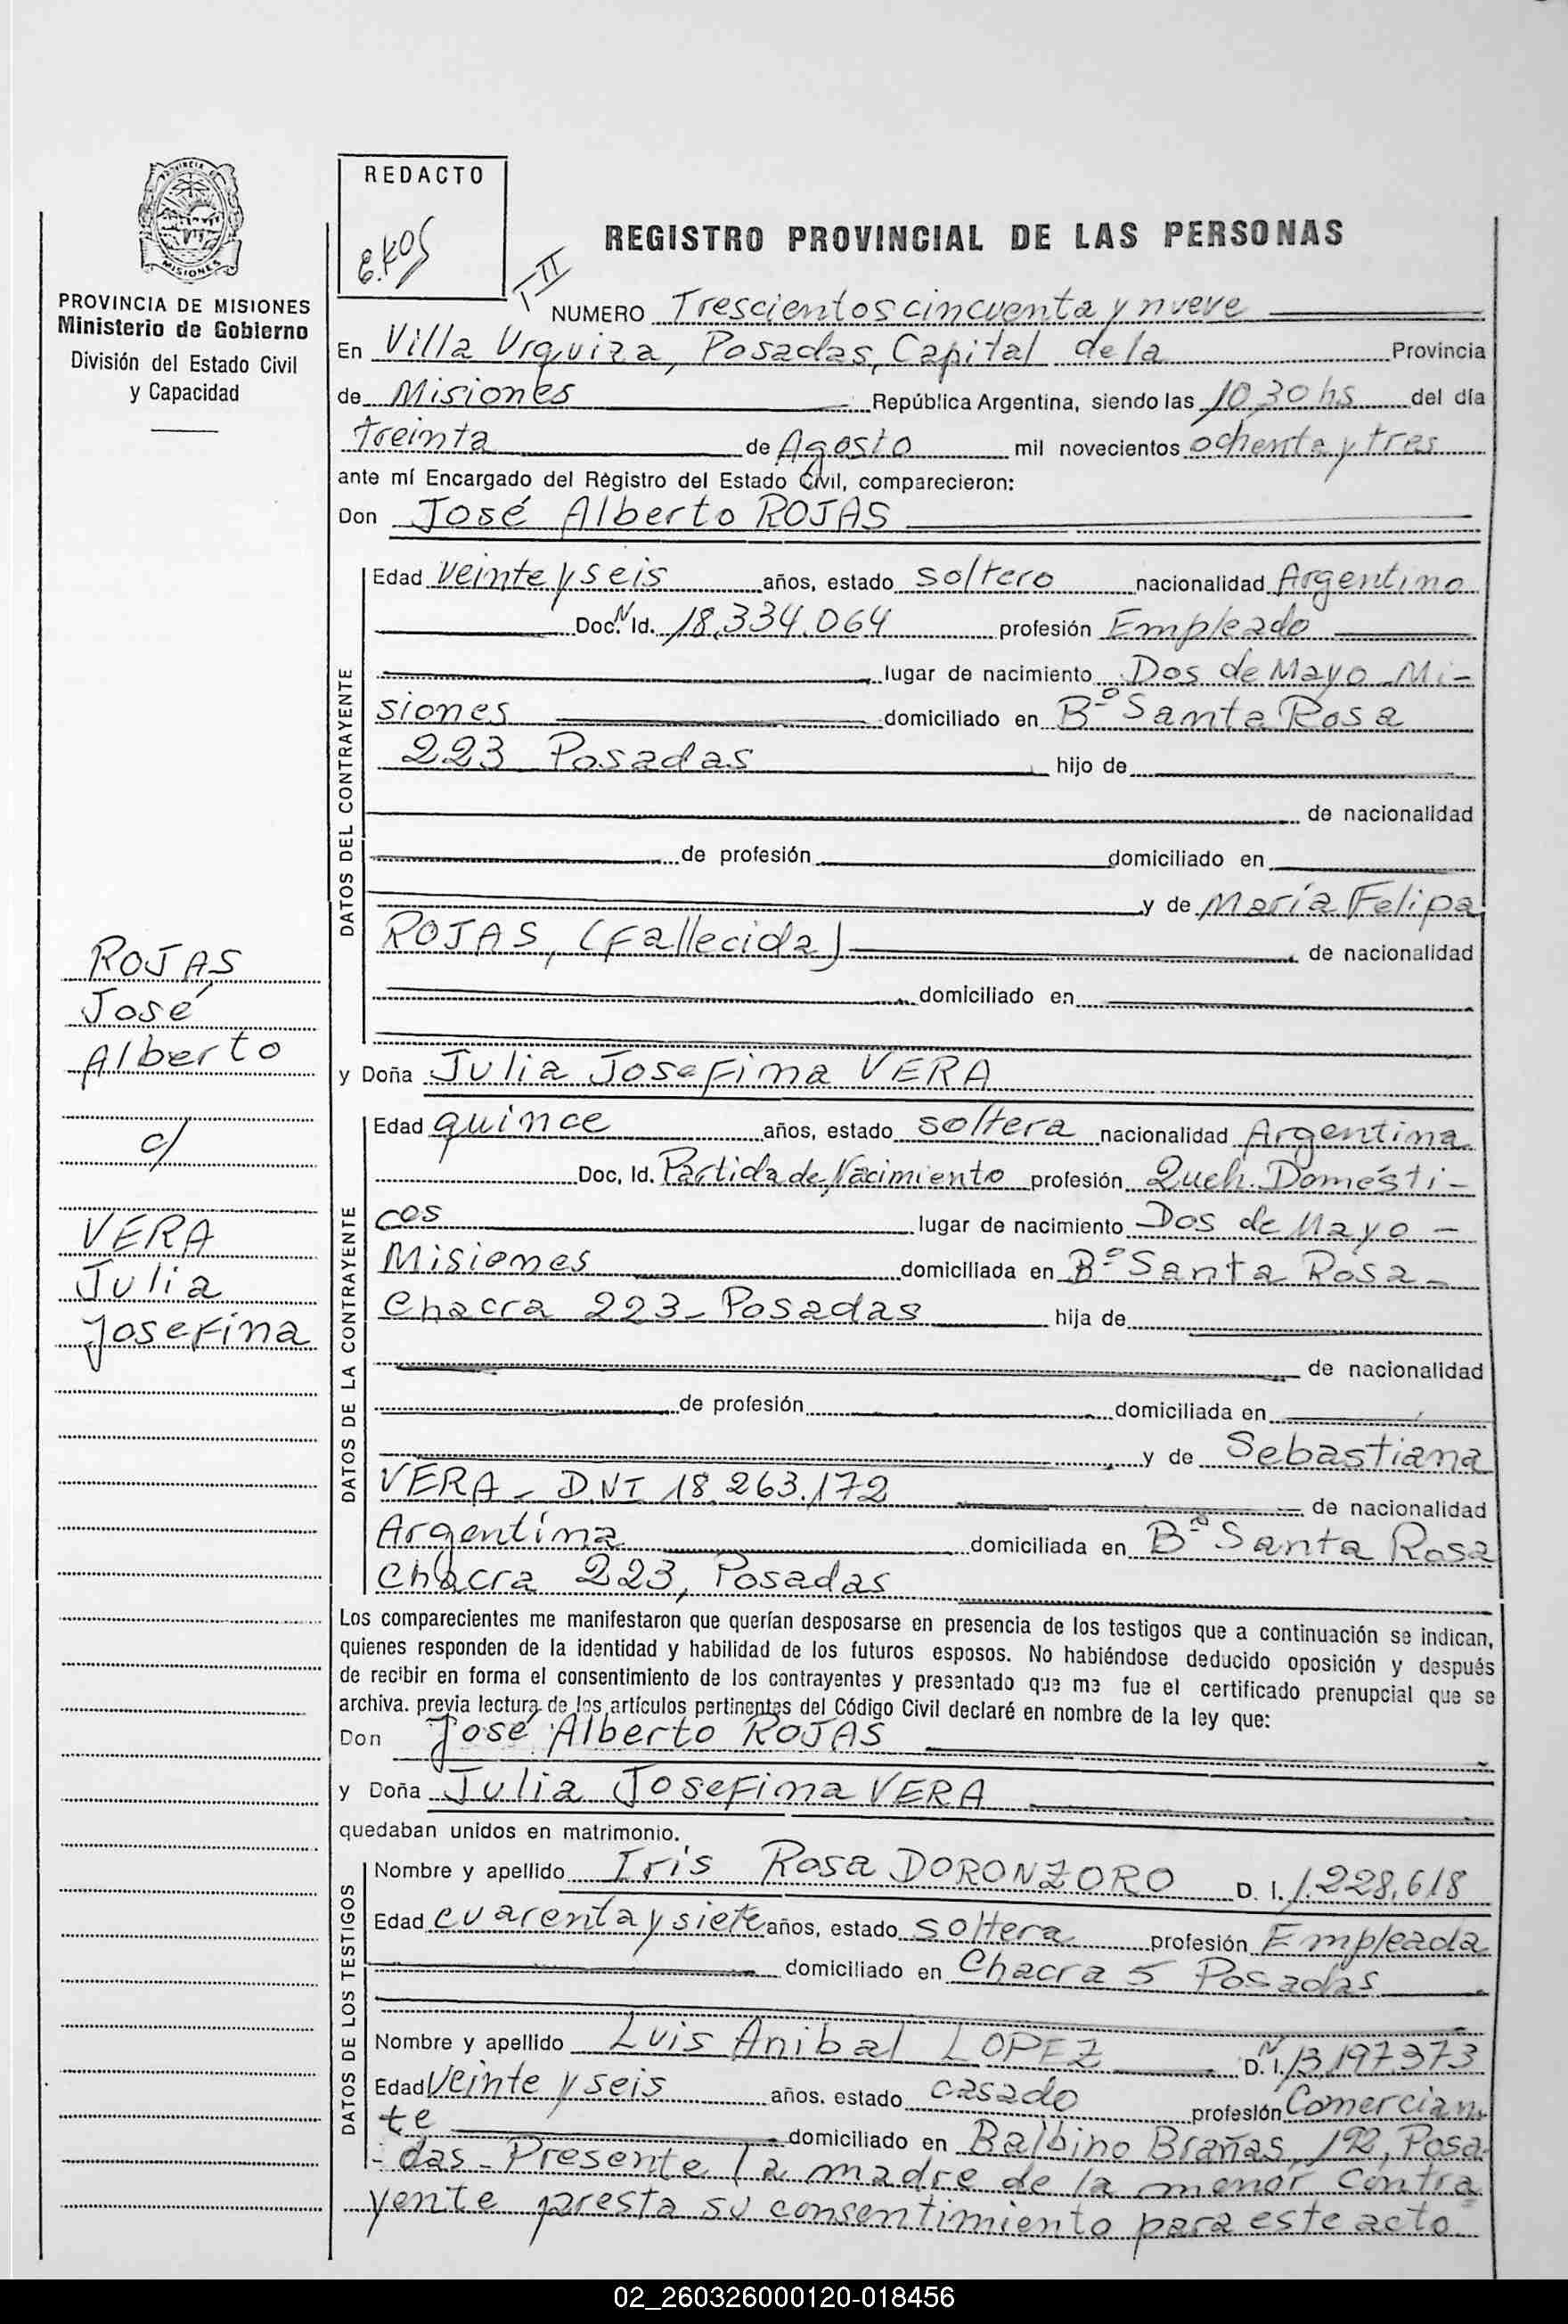 REDACTO
REGISTRO PROVINCIAL DE LAS PERSONAS
T II
NUMERO Trescientos cincuenta y nueve
PROVINCIA DE MISIONES
Ministerio de Gobierno
División del Estado Civil
y Capacidad
MISIONES
En Villa Urquiza, Posadas, Capital de la Provincia
de Misiones República Argentina, siendo las 10,30 hs del día
treinta de Agosto mil novecientos ochenta y tres
ante mí Encargado del Registro del Estado Civil, comparecieron:
Don José Alberto ROJAS
DATOS DEL CONTRAYENTE
Edad veinte y seis años, estado soltero nacionalidad Argentino
Doc. N Id. 18.334.064 profesión Empleado
lugar de nacimiento Dos de Mayo Mi-
siones domiciliado en Bº Santa Rosa
223 Posadas hijo de
de nacionalidad
de profesión domiciliado en
y de María Felipa
ROJAS, (Fallecida) de nacionalidad
domiciliado en
ROJAS
José
Alberto
c/
VERA
Julia
Josefina
y Doña Julia Josefina VERA
DATOS DE LA CONTRAYENTE
Edad quince años, estado soltera nacionalidad Argentina
Doc, Id. Partida de Nacimiento profesión Queh. Domésti-
cos lugar de nacimiento Dos de Mayo -
Misiones domiciliada en Bº Santa Rosa -
Chacra 223 - Posadas hija de
de nacionalidad
de profesión domiciliada en
y de Sebastiana
VERA - DNI 18.263.172 de nacionalidad
Argentina domiciliada en Bº Santa Rosa
Chacra 223, Posadas
Los comparecientes me manifestaron que querían desposarse en presencia de los testigos que a continuación se indican,
quienes responden de la identidad y habilidad de los futuros esposos. No habiéndose deducido oposición y después
de recibir en forma el consentimiento de los contrayentes y presentado que me fue el certificado prenupcial que se
archiva. previa lectura de los artículos pertinentes del Código Civil declaré en nombre de la ley que:
Don José Alberto ROJAS
y Doña Julia Josefina VERA
quedaban unidos en matrimonio.
DATOS DE LOS TESTIGOS
Nombre y apellido Iris Rosa DORONZORO D. I. 1.228.618
Edad cuarenta y siete años, estado soltera profesión Empleada
domiciliado en Chacra 5 Posadas
Nombre y apellido Luis Anibal LOPEZ D. N I. 13.197.373
Edad Veinte y seis años. estado casado profesión Comercian-
te domiciliado en Balbino Brañas, 192, Posa-
- das - Presente la madre de la menor contra
yente presta su consentimiento para este acto
02_260326000120-018456